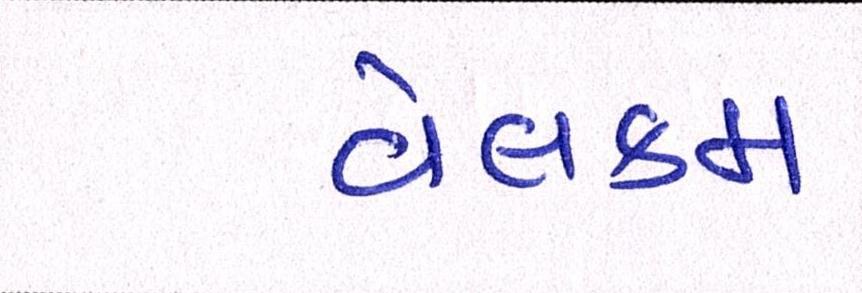 વેલકમ